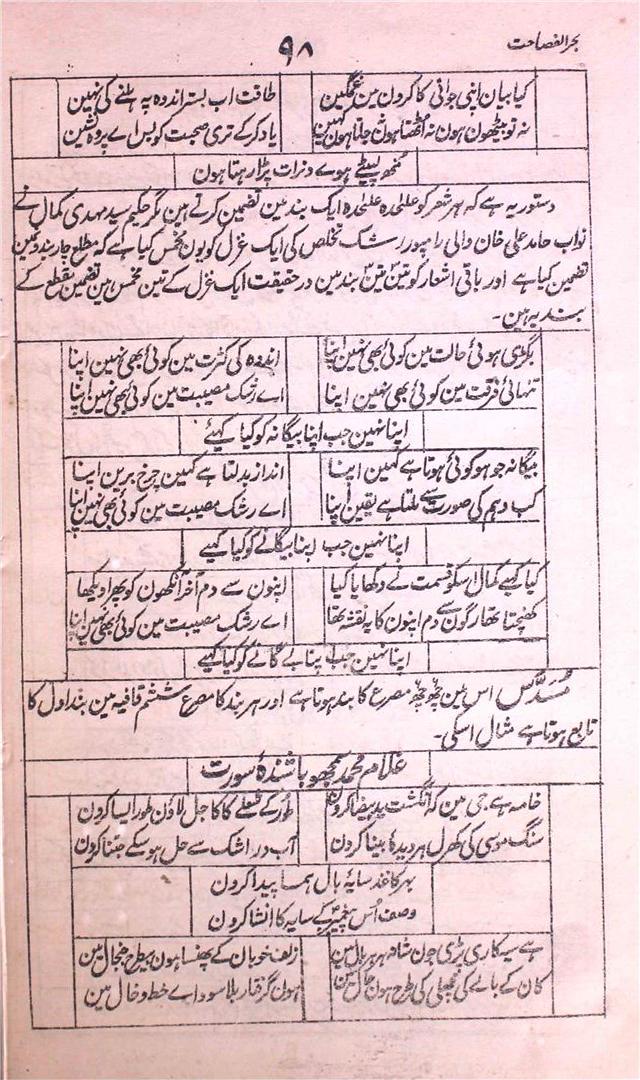 بحر الفصاحت
۹۸
کیا بیان اپنی جوانی کا کردن مین غمگین
طاقت اب بستر اندوہ پہ ہلنے کی نہین
نہ تو بیٹھون ہون نہ اٹھتا ہون نہ چلتا ہون کہین
یاد کرکے تری صحبت کو بس اے پردہ نشین
منھ لپیٹے ہوے دنرات پڑا رہتا ہون
دستور یہ ہے کہ ہر شعر کو علٰحدہ علٰحدہ ایک بند مین تضمین کرتے ہین مگر حکیم سید مہدی کمال نے
نواب حامد علی خان والی رامپور رشک تخلص کی ایک غزل کو یون مخمس کیا ہے کہ مطلع چار بند مین
تضمین کیا ہے اور باقی اشعار کو تین تین بند مین در حقیقت ایک غزل کے تین مخمس ہین تضمین مقطع کے
بند یہ ہین۔
بگڑی ہوئی حالت مین کوئی بھی نہین اپنا
اندوہ کی کثرت مین کوئی بھی نہین اپنا
تنہائی فرقت مین کوئی بھی نہین اپنا
اے رشک مصیبت مین کوئی بھی نہین اپنا
اپنا نہین جب اپنا بیگانہ کو کیا کہیے
بیگانہ جو ہو کوئی ہوتا ہے کہین اپنا
انداز بدلتا ہے کہین چرخ برین اپنا
کب وہم کی صورت سے ملتا ہے یقین اپنا
اے رشک مصیبت مین کوئی بھی نہین اپنا
اپنا نہین جب اپنا بیگانے کو کیا کہیے
کیا کہیے کمال اسکو قسمت نے دکھایا کیا
اپنون سے دم آخر آنکھون کو پھرا دیکھا
کھچتا تھا رگون سے دم اپنون کا یہ نقشہ تھا
اے رشک مصیبت مین کوئی بھی نہین اپنا
اپنا نہین جب اپنا بے گانے کو کیا کہیے
مسدس اس مین چھ چھ مصرع کا بند ہوتا ہے اور ہر بند کا مصرع ششم قافیہ مین بند اول کا
تابع ہوتا ہے مثال اسکی۔
غلام محمد مجھو باشندۂ سورت
خامہ ہے جی مین کہ انگشت ید بیضا کرون
طور کے شعلے کا کاجل لاؤن طور ایسا کرون
سنگ موسی کی کھرل ہر دیدۂ بینا کرون
آب در اشک سے حل ہو سکے جتنا کرون
بہر کاغذ سایۂ بال ہما پیدا کرون
وصف اُس پیغمبر کے سایہ کا انشا کرون
ہے سیہ کاری بڑی جون شانہ ہر ہر بال مین
زلف خوبان کے پھنسا ہون بیطرح جنجال مین
کان کے بالے کی مچھلی کی طرح ہون جال مین
ہون گرفتار بلا سوداے خط و خال مین